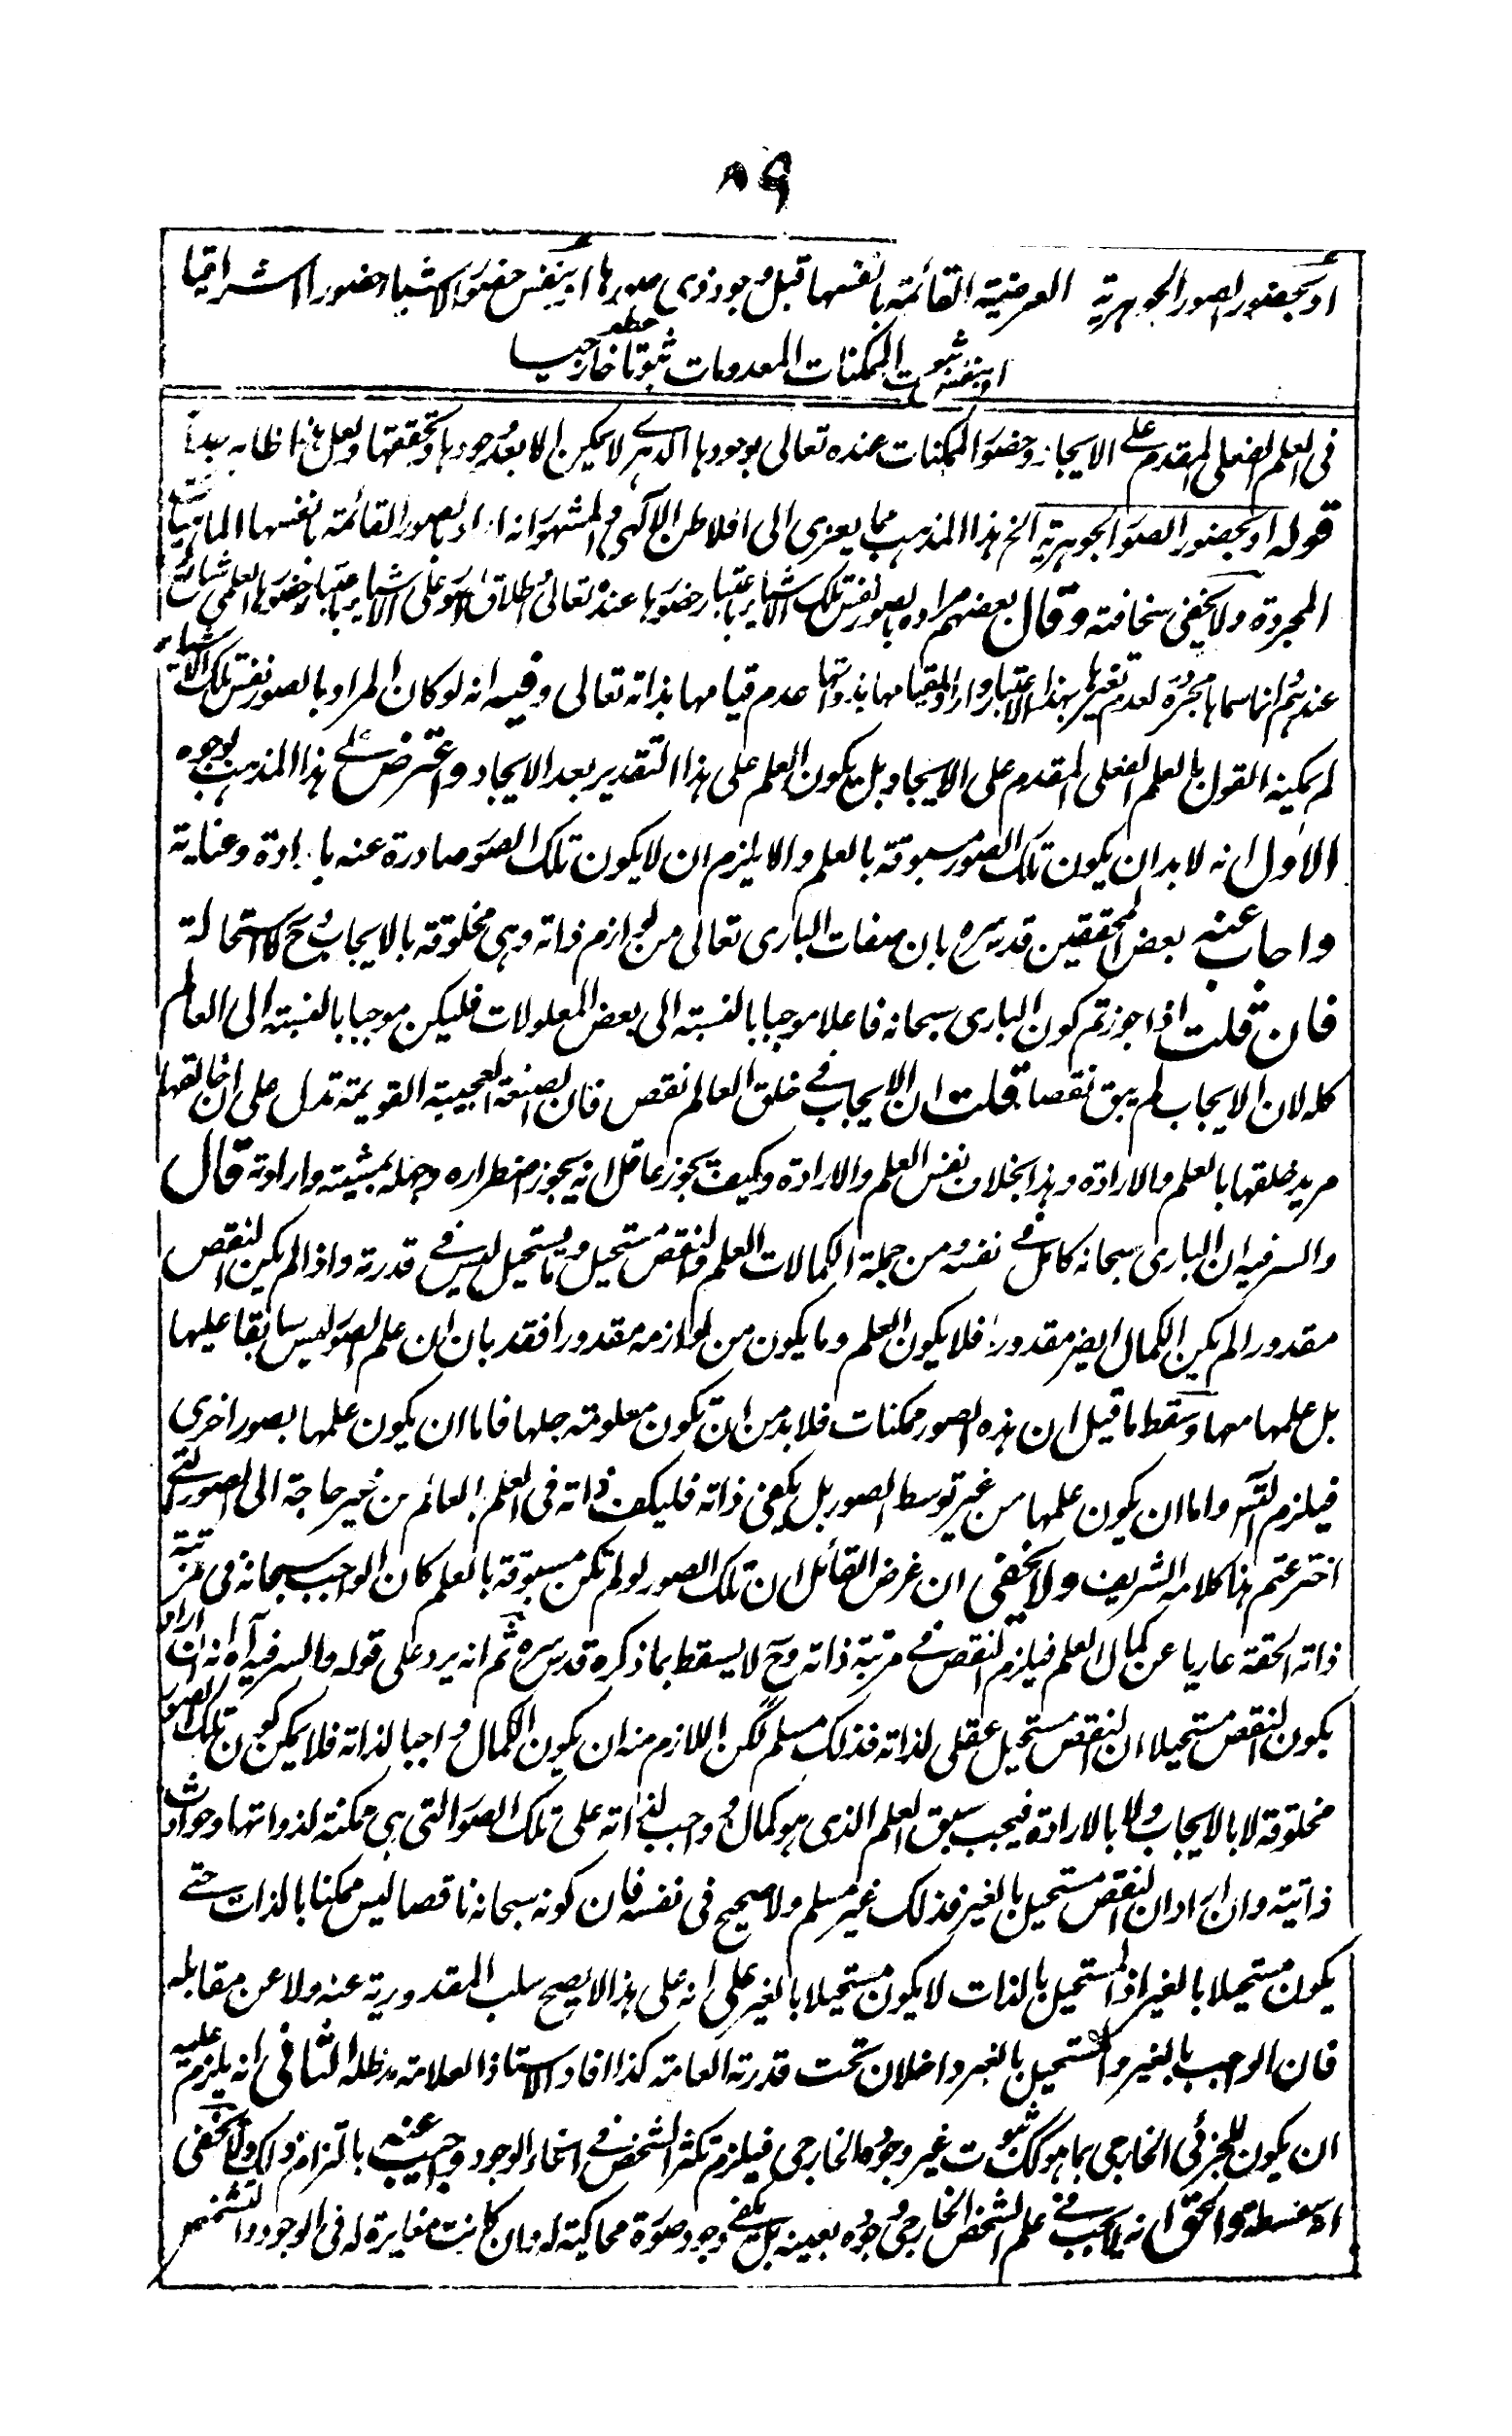 ۸۹
او بحضور الصور الجوهرية العرضية القائمة بانفسها قبل وجود ذوى صورها او بنفس حضور الاشياء حضورا اشراقيا
او بنفس ثبوت الممكنات المعدومات ثبوتا خارجيا
فى العلم الفعلى المقدم على الايجاد وحضور الممكنات عنده تعالى بوجودها الدهرى لا يمكن الا بعد وجودها وتحققها ولعل هذا ظاهر جدا
قوله او بحضور الصور الجوهرية الخ هذا المذهب مما يعزى الى افلاطن الالهى والمشهور انه اراد بالصور القائمة بانفسها الماهيات
المجردة ولا يخفى سخافته وقال بعضهم مراده بالصور نفس تلك الاشياء باعتبار حضورها عنده تعالى واطلاق الصور على الاشياء باعتبار حضورها العلمى شائع
عندهم انما سماها مجردة لعدم تغيرها بهذا الاعتبار واراد بقيامها بذواتها عدم قيامها بذاته تعالى وفيه انه لو كان المراد بالصور نفس تلك الاشياء
لم يمكنه القول بالعلم الفعلى المقدم على الايجاد بل يكون العلم على هذا التقدير بعد الايجاد واعترض على هذا المذهب بوجوه
الاول انه لا بد ان يكون تلك الصور مسبوقة بالعلم والا يلزم ان لا يكون تلك الصور صادرة عنه بارادة وعناية
واجاب عنه بعض المحققين قدس سره بان صفات البارى تعالى من لوازم ذاته وهى مخلوقة بالايجاب وح لا استحالة
فان قلت اذا جوزتم كون البارى سبحانه فاعلا موجبا بالنسبة الى بعض المعلولات فليكن موجبا بالنسبة الى العالم
كله لان الايجاب لم يبق نقصا قلت ان الايجاب فى خلق العالم نقص فان الصنعة العجيبة القويمة تدل على ان خالقها
مريد خلقها بالعلم والارادة وهذا بخلاف نفس العلم والارادة وكيف يجوز عاقل انه يجوز اضطراره وجهله بمشيته وارادته قال
والسر فيه ان البارى سبحانه كامل فى نفسه ومن جملة الكمالات العلم والنقص مستحيل وما يستحيل ليس فى قدرته واذا لم يكن النقص
مقدورا لم يكن الكمال ايضا مقدورا فلا يكون العلم وما يكون من لوازمه مقدورا فقد بان ان علم الصور ليس سابقا عليها
بل علمها معها وسقط ما قيل ان هذه الصور ممكنات فلا بد من ان تكون معلومة جلها فاما ان يكون علمها بصور اخرى
فيلزم التس واما ان يكون علمها من غير توسط الصور بل يكفى ذاته فليكف ذاته فى العلم بالعالم من غير حاجة الى الصور التى
اخترعتم هذا كلامه الشريف ولا يخفى ان غرض القائل ان تلك الصور لو لم تكن مسبوقة بالعلم كان الواجب سبحانه فى مرتبة
ذاته الحقة عاريا عن كمال العلم فيلزم النقص فى مرتبة ذاته وح لا يسقط بما ذكره قدس سره ثم انه يرد على قوله والسر فيه آه انه ان اراد
بكون النقص مستحيلا ان النقص مستحيل عقلى لذاته فذلك مسلم لكن اللازم منه ان يكون الكمال واجبا لذاته فلا يمكن كون تلك الصور
مخلوقة لا بالايجاب ولا بالارادة فيجب سبق العلم الذى هو كمال واجب لذاته على تلك الصور التى هى ممكنة لذواتها وحوادث
ذاتية وان اراد ان النقص مستحيل بالغير فذلك غير مسلم ولا صحيح فى نفسه فان كونه سبحانه ناقصا ليس ممكنا بالذات حتى
يكون مستحيلا بالغير اذ المستحيل بالذات لا يكون مستحيلا بالغير على انه على هذا لا يصح سلب المقدورية عنه ولا عن مقابله
فان الواجب بالغير والمستحيل بالغير داخلان تحت قدرته العامة كذا افاد الاستاذ العلامة مد ظله الثانى انه يلزم عليه
ان يكون للجزئى الخارجى بما هو كك ثبوت غير وجوده الخارجى فيلزم تكثر الشخص فى انحاء الوجود واجيب عنه بالتزام ذلك ولا يخفى
انه سفسطة والحق انه لا يجب فى علم الشخص الخارجى وجوده بعينه بل يكفى وجود صورة محاكية له وان كانت مغايرة له فى الوجود والتشخص